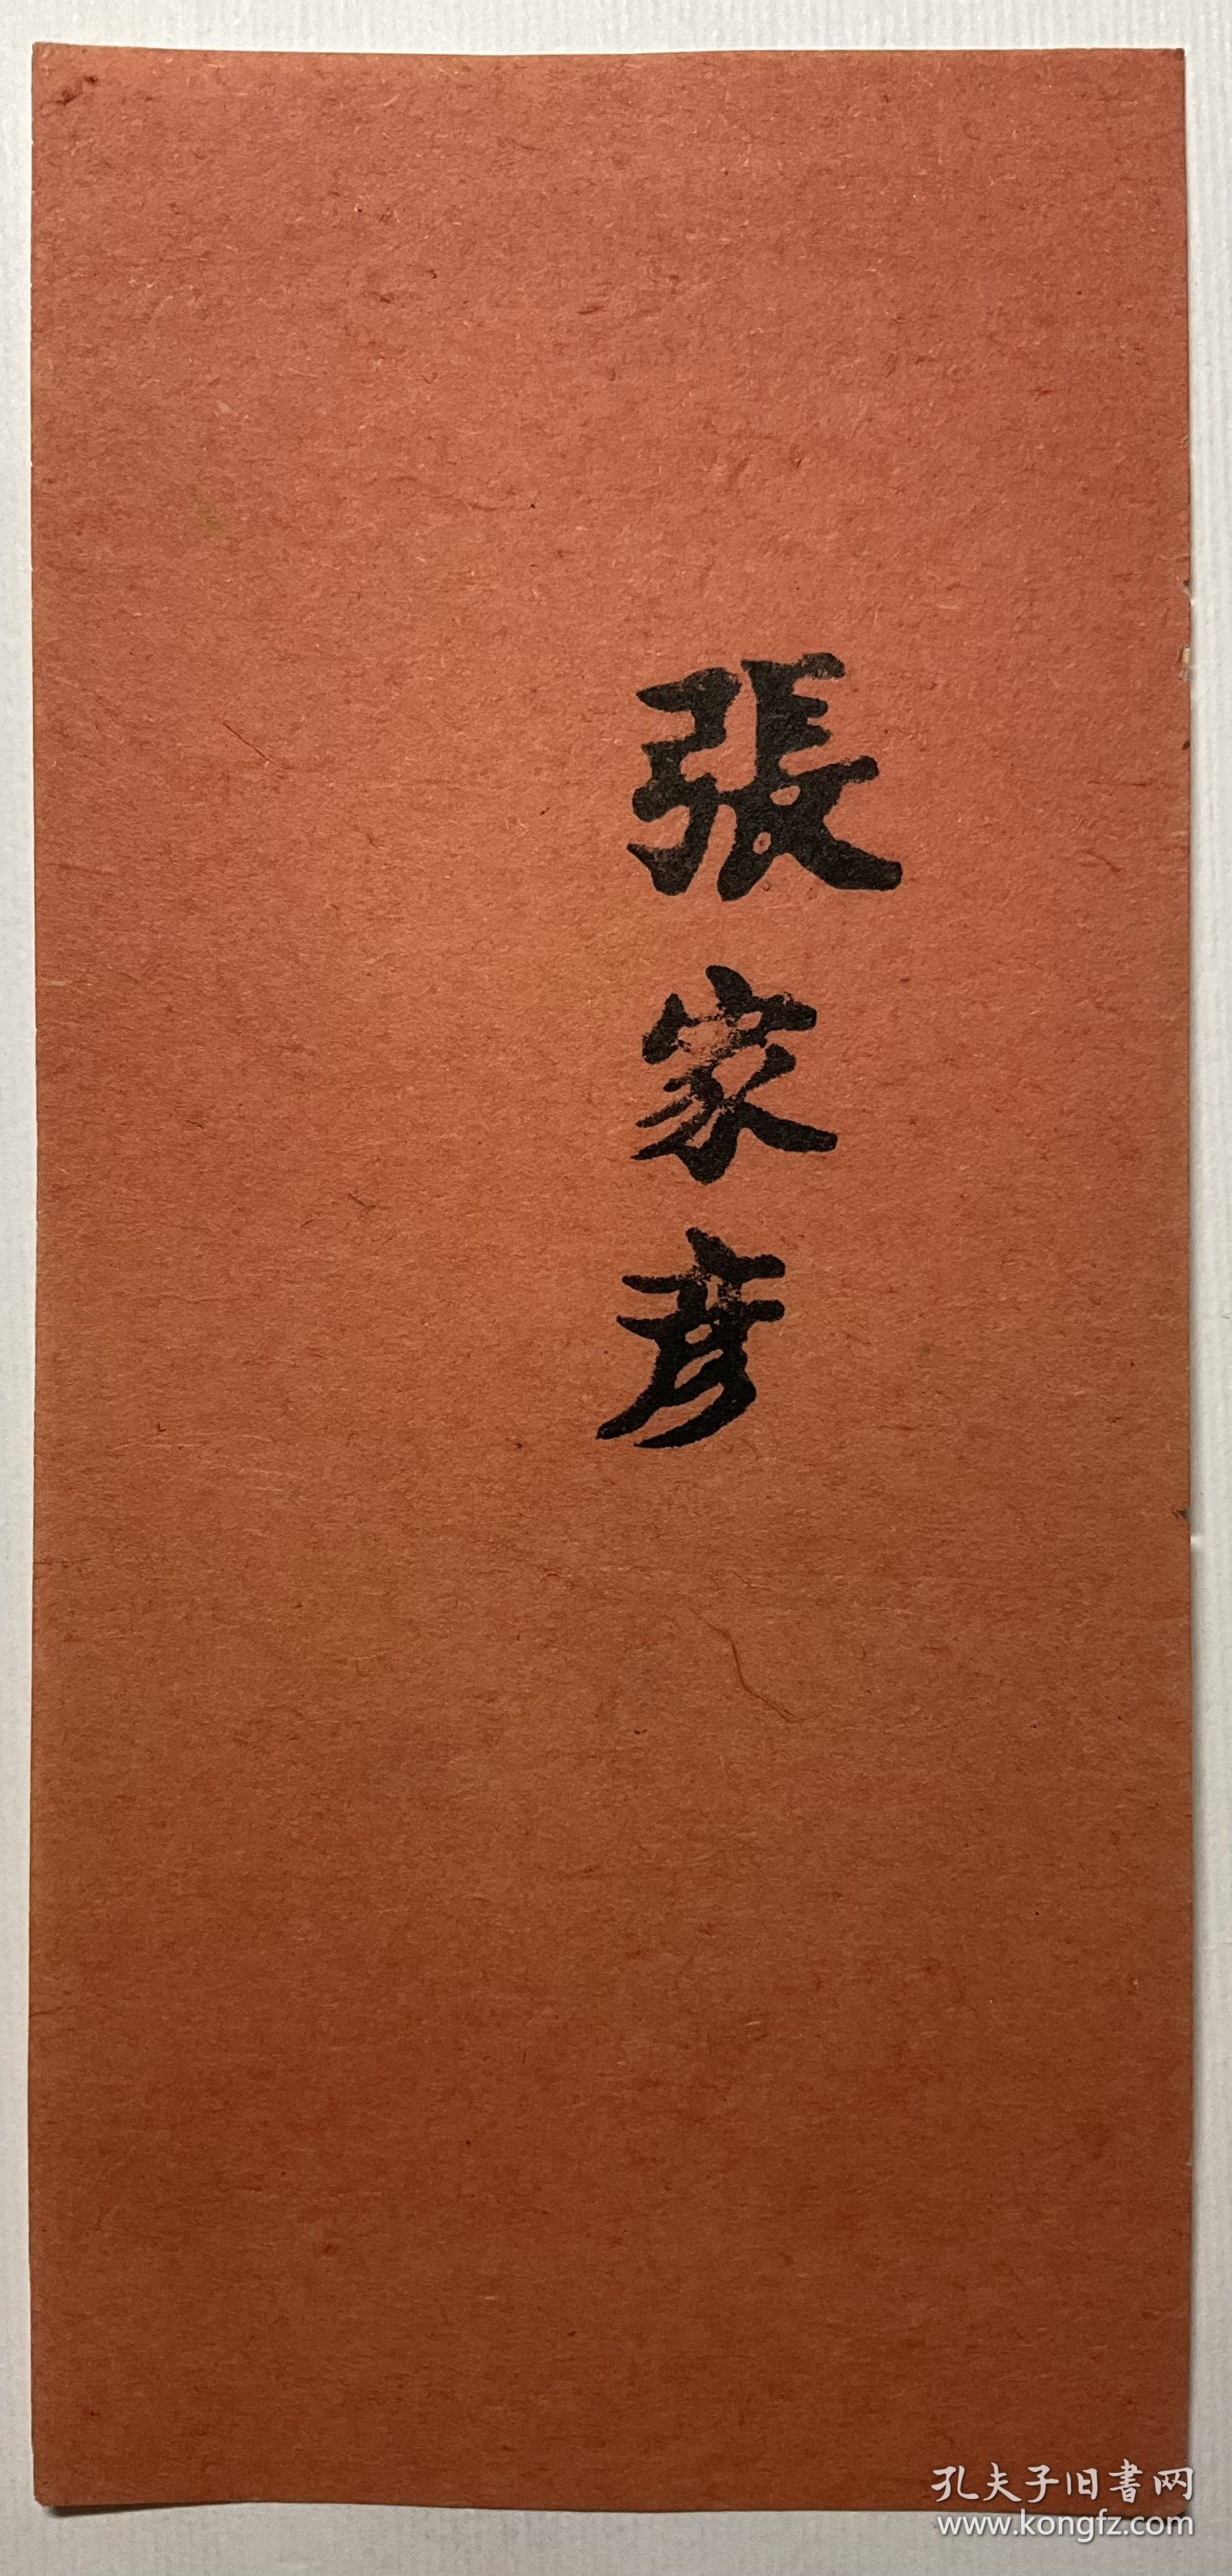 張家彦
孔夫子旧書网
www.kongfz.com